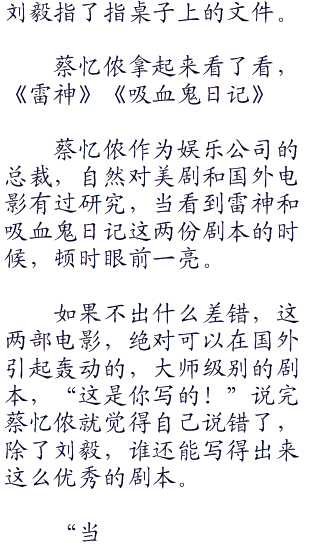 刘毅指了指桌子上的文件。
蔡忆侬拿起来看了看，
《雷神》《吸血鬼日记》
蔡忆侬作为娱乐公司的
总裁，自然对美剧和国外电
影有过研究，当看到雷神和
吸血鬼日记这两份剧本的时
候，顿时眼前一亮。
如果不出什么差错，这
两部电影，绝对可以在国外
引起轰动的，大师级别的剧
本，“这是你写的！”说完
蔡忆侬就觉得自己说错了，
除了刘毅，谁还能写得出来
这么优秀的剧本。
“当